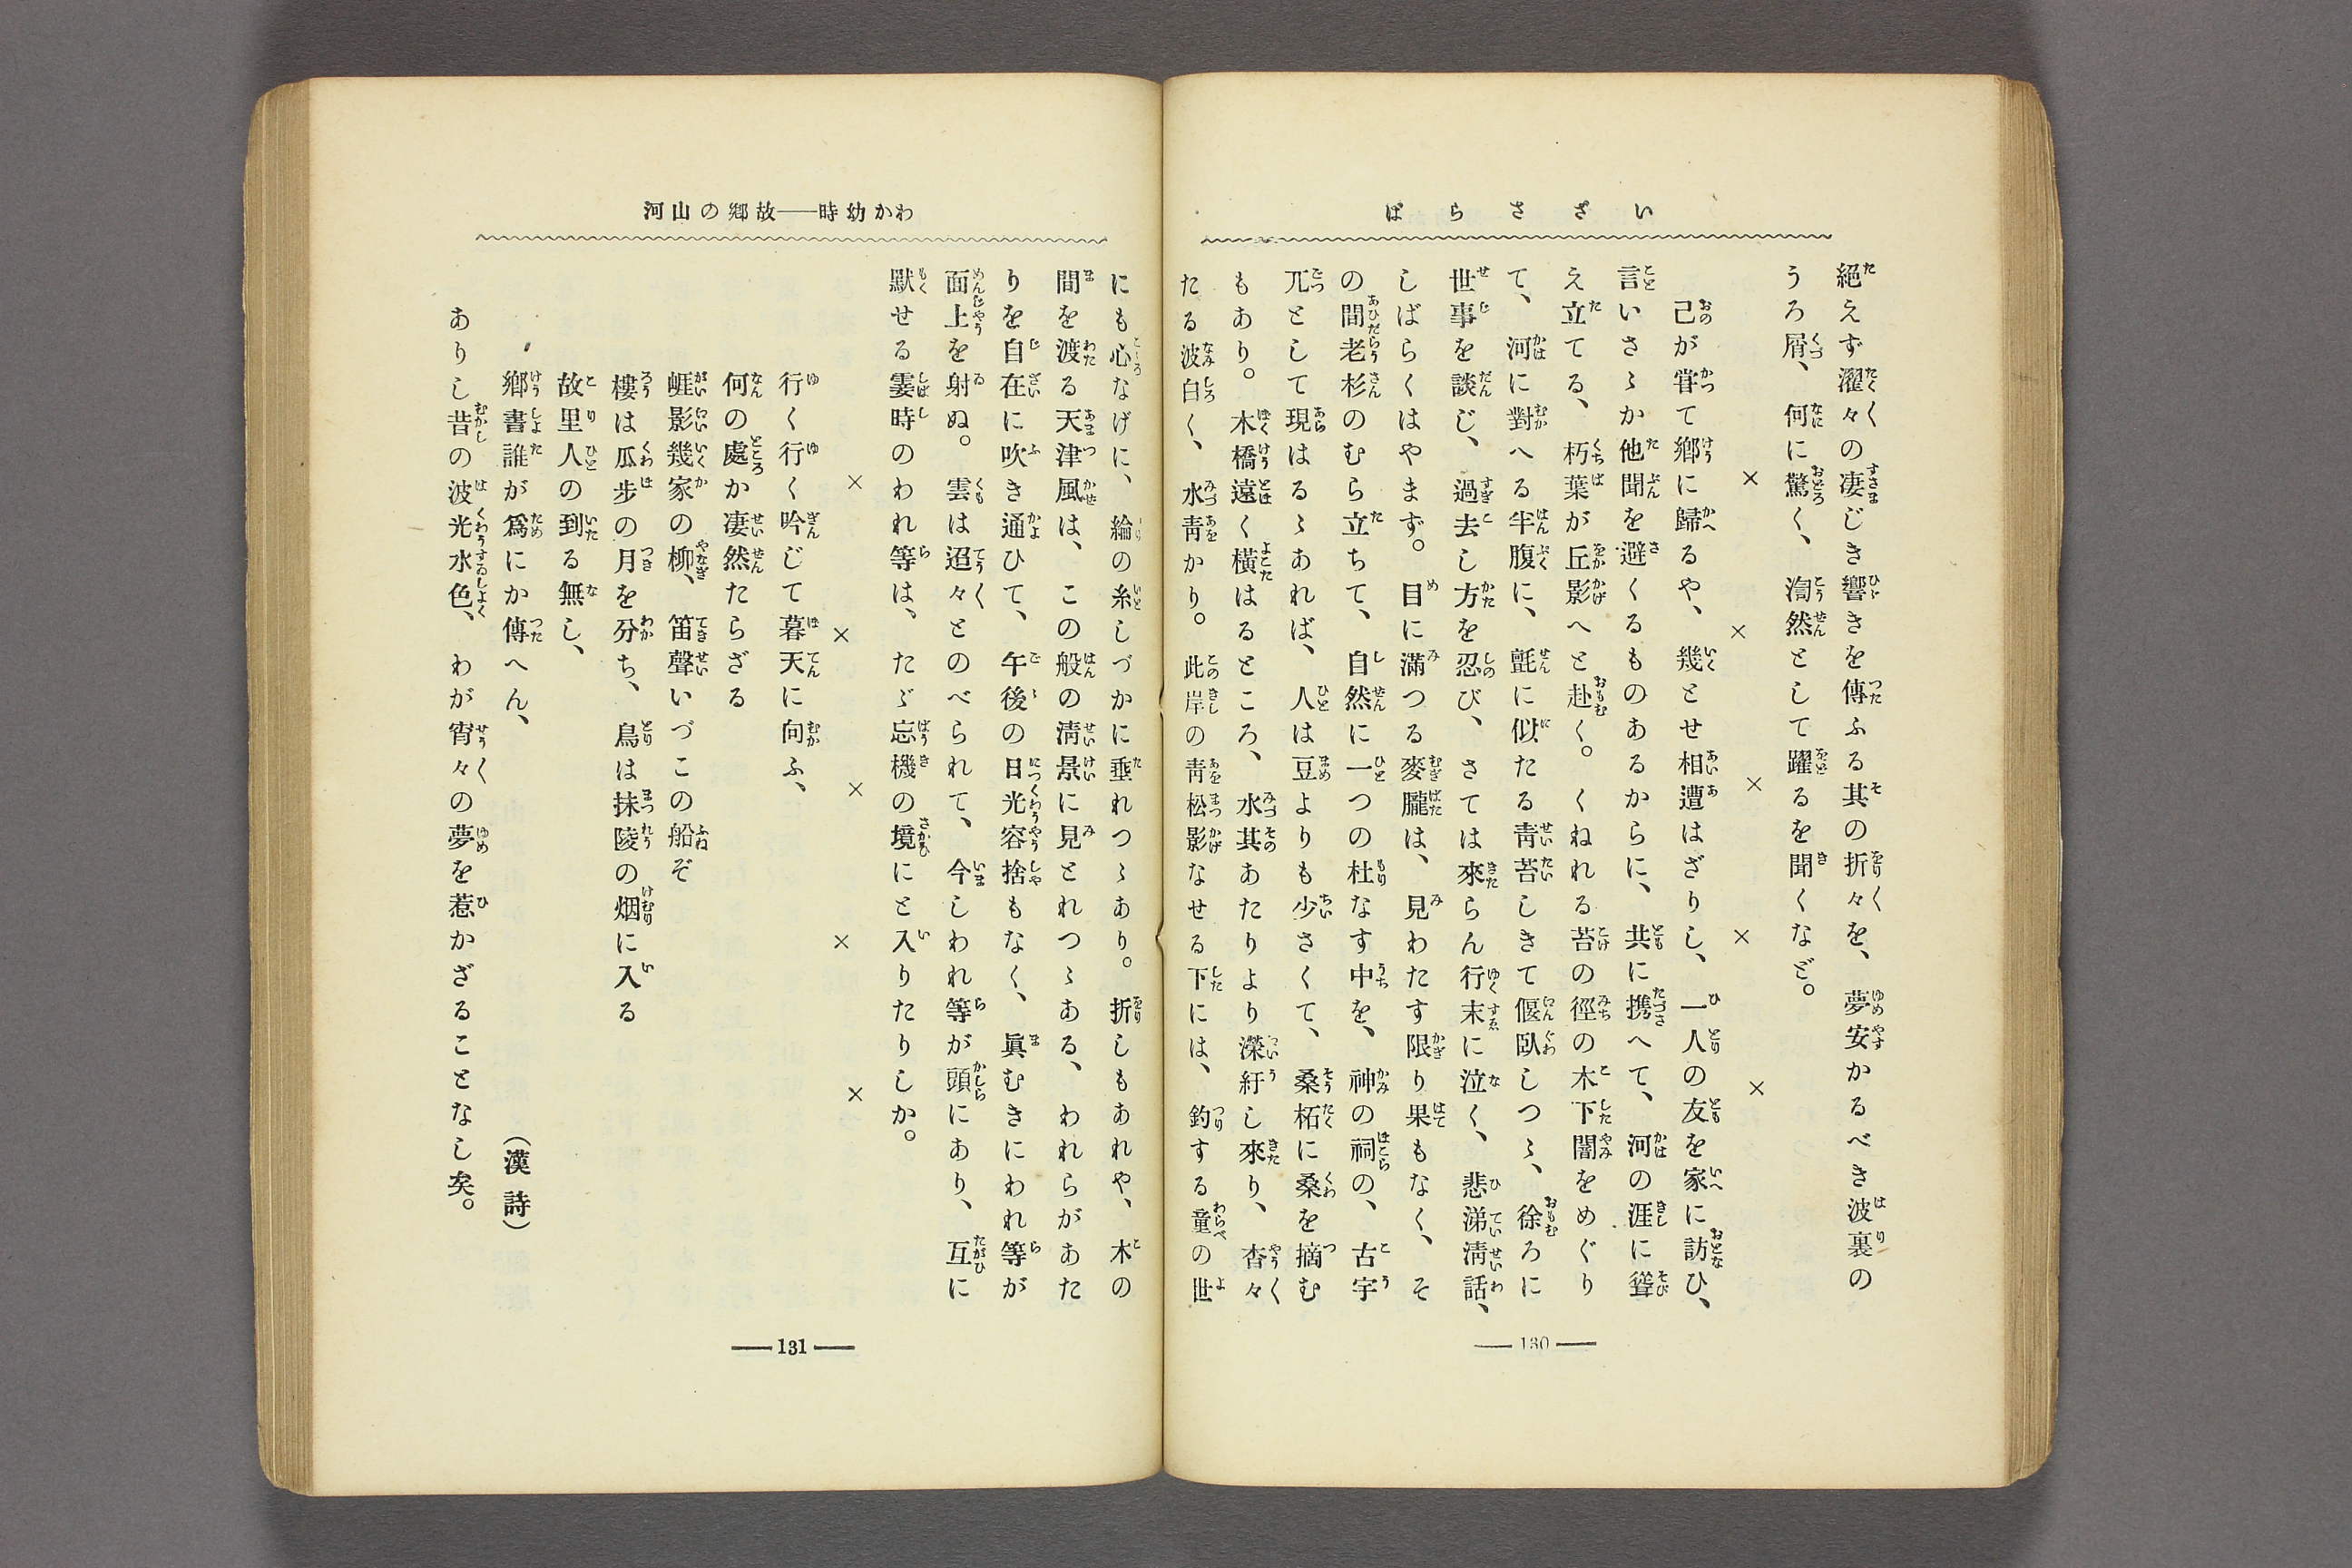 いさゞらば
絕えず濯々の凄じき響きを傳ふる其の折々を、夢安かるべき波裏の
うろ屑、何に驚く、渹然として躍るを聞くなど。
×　×　×　×　×
己が甞て鄕に歸るや、幾とせ相遭はざりし、一人の友を家に訪ひ、
言いさゝか他聞を避くるものあるからに、共に携へて、河の涯に聳
え立てる、朽葉が丘影へと赴く。くねれる苔の徑の木下闇をめぐり
て、河に對へる半腹に、氈に似たる靑苔しきて偃臥しつゝ、徐ろに
世事を談じ、過去し方を忍び、さては來らん行末に泣く、悲涕淸話、
しばらくはやまず。目に滿つる麥隴は、見わたす限り果もなく、そ
の間老杉のむら立ちて、自然に一つの杜なす中を、神の祠の、古宇
兀として現はるゝあれば、人は豆よりも少さくて、桑柘に桑を摘む
もあり。木橋遠く橫はるところ、水其あたりより濚紆し來り、杳々
たる波白く、水靑かり。此岸の靑松影なせる下には、釣する童の世
130
わか幼時――故鄕の山河
にも心なげに、綸の糸しづかに垂れつゝあり。折しもあれや、木の
間を渡る天津風は、この般の淸景に見とれつゝある、われらがあた
りを自在に吹き通ひて、午後の日光容捨もなく、眞むきにわれ等が
面上を射ぬ。雲は迢々とのべられて、今しわれ等が頭にあり、互に
默せる霎時のわれ等は、たゞ忘機の境にと入りたりしか。
×　×　×　×　×
行く行く吟じて暮天に向ふ、
何の處か凄然たらざる
崕影幾家の柳、笛聲いづこの船ぞ
樓は瓜步の月を分ち、鳥は抹陵の烟に入る
故里人の到る無し、
鄕書誰が爲にか傳へん、
（漢詩）
ありし昔の波光水色、わが宵々の夢を惹かざることなし矣。
131